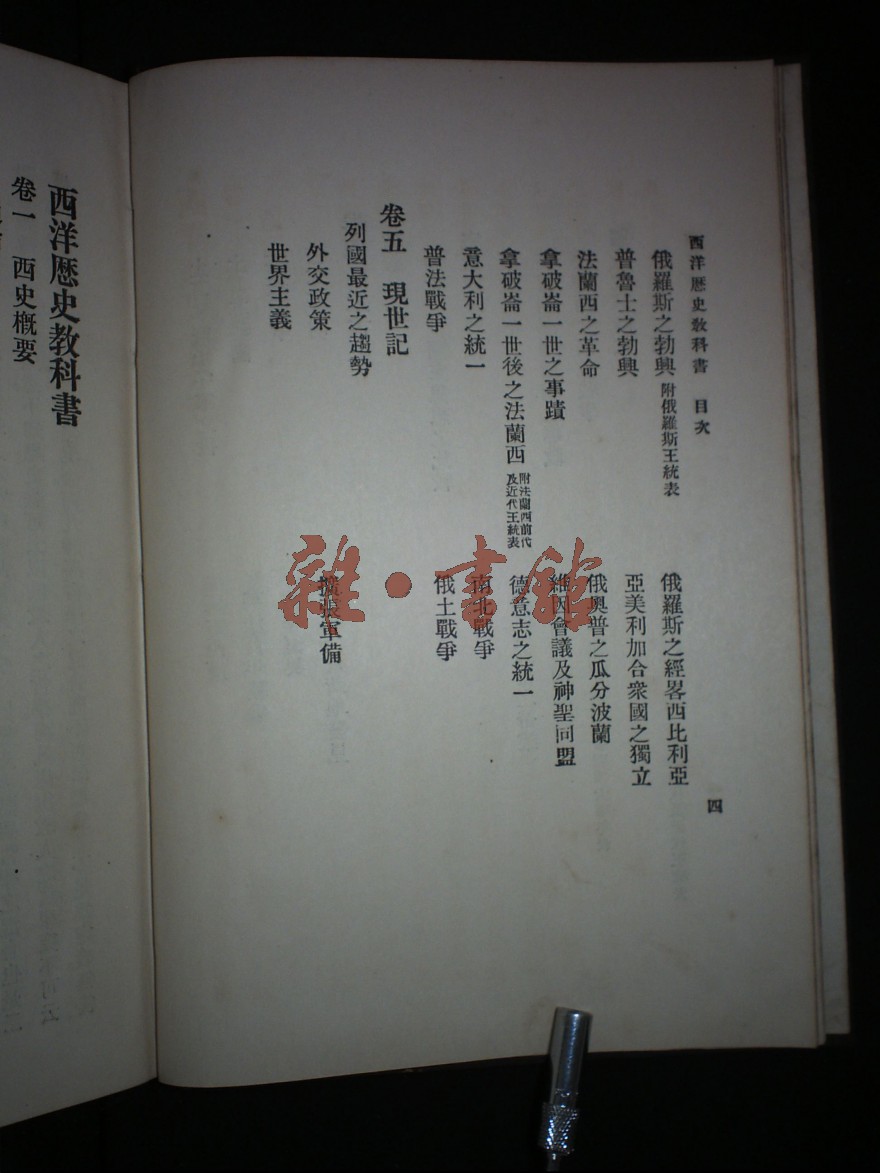 西洋歷史教科書 目次 四
俄羅斯之勃興 附俄羅斯王統表 俄羅斯之經畧西比利亞
普魯士之勃興 亞美利加合衆國之獨立
法蘭西之革命 俄奧普之瓜分波蘭
拿破崙一世之事蹟 維因會議及神聖同盟
拿破崙一世後之法蘭西 附法蘭西前代及近代王統表 德意志之統一
意大利之統一 南北戰爭
普法戰爭 俄土戰爭
卷五 現世記
列國最近之趨勢
外交政策 擴張軍備
世界主義
西洋歷史教科書
卷一 西史概要
雜·書館